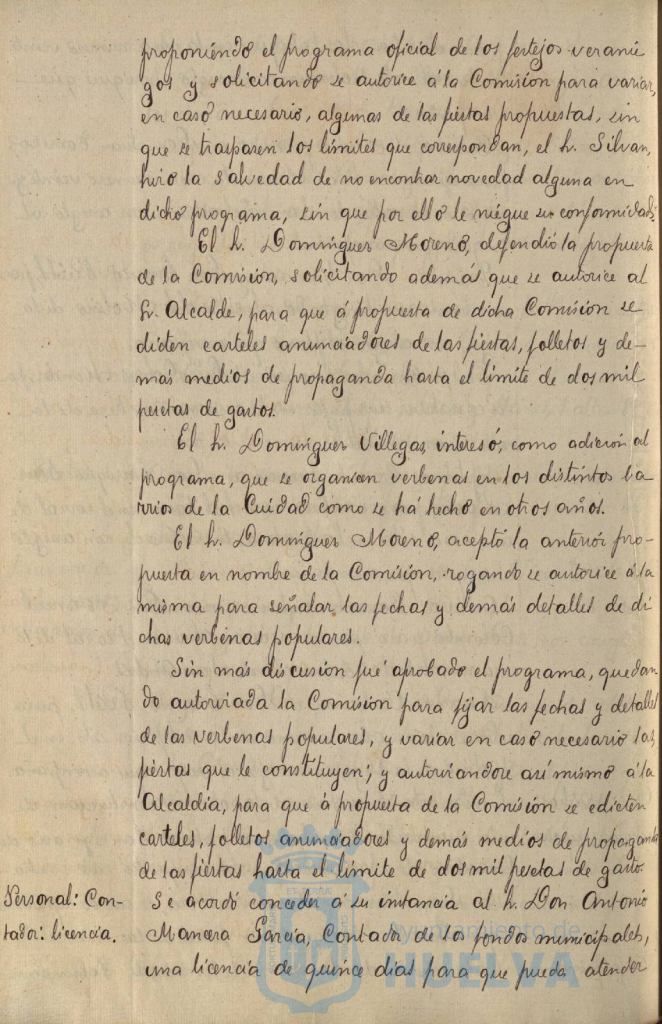 proponiendo el programa oficial de los festejos veranie
gos y solicitando se autorice á la Comision para variar,
en caso necesario, algunas de las fiestas propuestas, sin
que se traspasen los límites que correspondan, el Sr. Silvan,
hizo la salvedad de no encontrar novedad alguna en
dicho programa, sin que por ello le niegue su conformidad.
El Sr. Domínguez Moreno, defendió la propuesta
de la Comision, solicitando además que se autorice al
Sr. Alcalde, para que á propuesta de dicha Comisión se
dicten carteles anunciadores de las fiestas, folletos y de-
más medios de propaganda hasta el límite de dos mil
pesetas de gastos.
El Sr. Domínguez Villegas, interesó, como adición al
programa, que se organicen verbenas en los distintos ba
rrios de la Cuidad como se há hecho en otros años.
El Sr. Domínguez Moreno, aceptó la anterior pro-
puesta en nombre de la Comision, rogando se autorice á la
misma para señalar las fechas y demás detalles de di
chas verbenas populares.
Sin más discusión fué aprobado el programa, quedan
do autorizada la Comision para fijar las fechas y detalles
de las verbenas populares, y variar en caso necesario las
fiestas que le constituyen; y autorizandose así mismo á la
Alcaldía, para que á propuesta de la Comision se edicten
carteles, folletos anunciadores y demás medios de propaganda
de las fiestas hasta el límite de dos mil pesetas de gasto.
Personal: Con-
tador: licencia.
Se acordó conceder á su instancia al Sr. Don Antonio
Mancera García, Contador de los fondos municipales,
una licencia de quince dias para que pueda atender
Ayuntamiento de
HUELVA